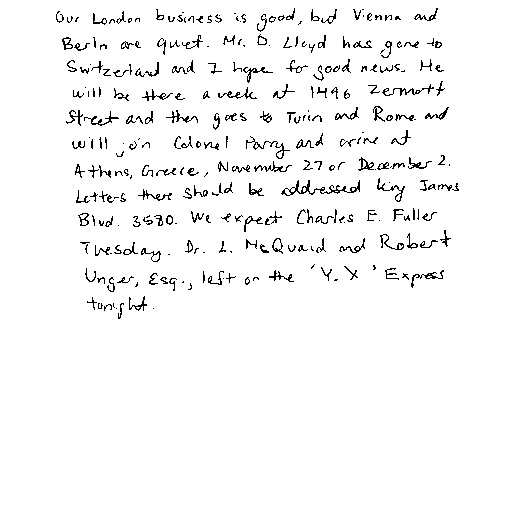 Our London business is good, but Vienna and
Berlin are quiet. Mr. D. Lloyd has gone to
Switzerland and I hope for good news. He
will be there a week at 1496 Zermott
Street and then goes to Turin and Rome and
will join Colonel Parry and arrive at
Athens, Greece, November 27 or December 2.
Letters there should be addressed King James
Blvd. 3580. We expect Charles E. Fuller
Tuesday. Dr. L. McQuaid and Robert
Unger, Esq., left on the 'Y. X' Express
tonight.